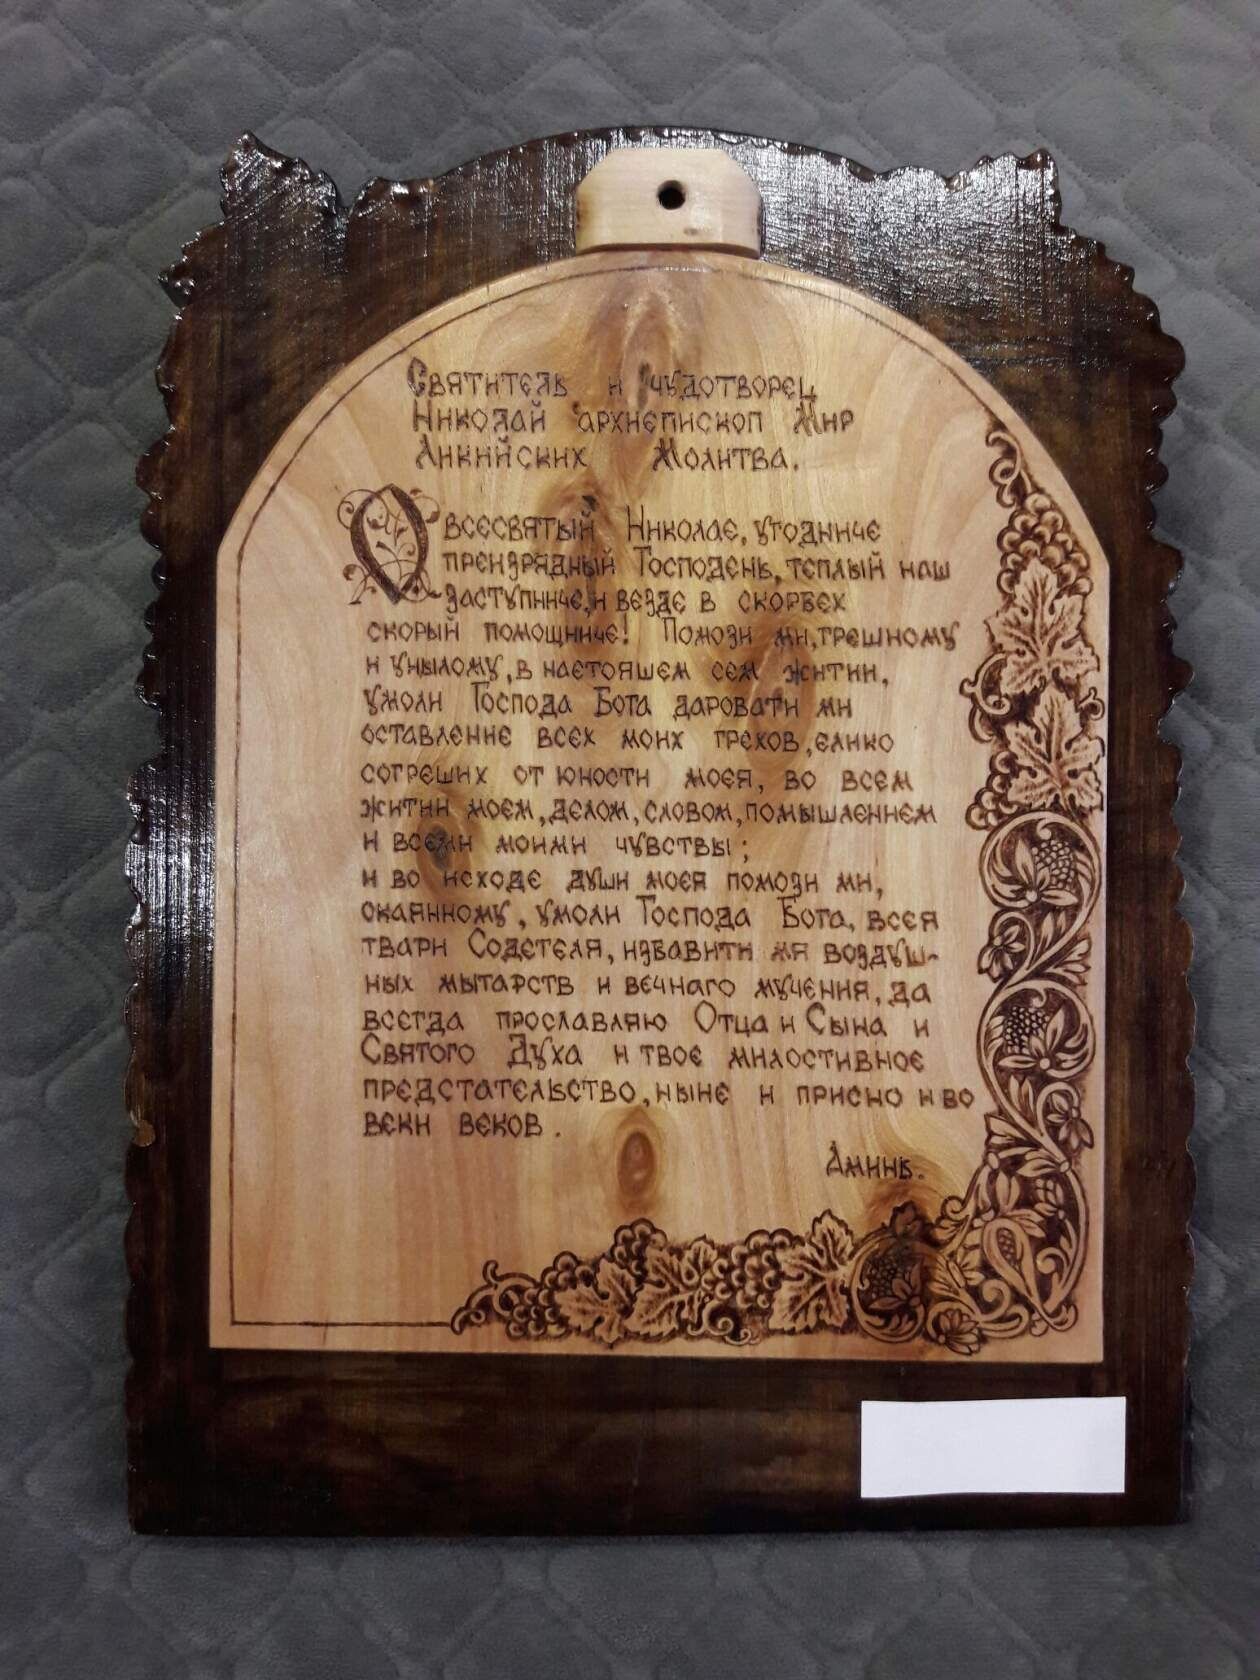 Святитель и чудотворец
Николай архиепископ Мир
Ликийских Молитва.
О всесвятый Николае, угодниче
преизрядный Господень, теплый наш
заступниче, и везде в скорбех
скорый помощниче! Помози ми, грешному
и унылому, в настояшем сем житии,
умоли Господа Бога даровати ми
оставление всех моих грехов, елико
согреших от юности моея, во всем
житии моем, делом, словом, помышлением
и всеми моими чувствы;
и во исходе души моея помози ми,
окаянному, умоли Господа Бога, всея
твари Содетеля, избавити мя воздуш-
ных мытарств и вечнаго мучения, да
всегда прославляю Отца и Сына и
Святого Духа и твое милостивное
предстательство, ныне и присно и во
веки веков.
Аминь.